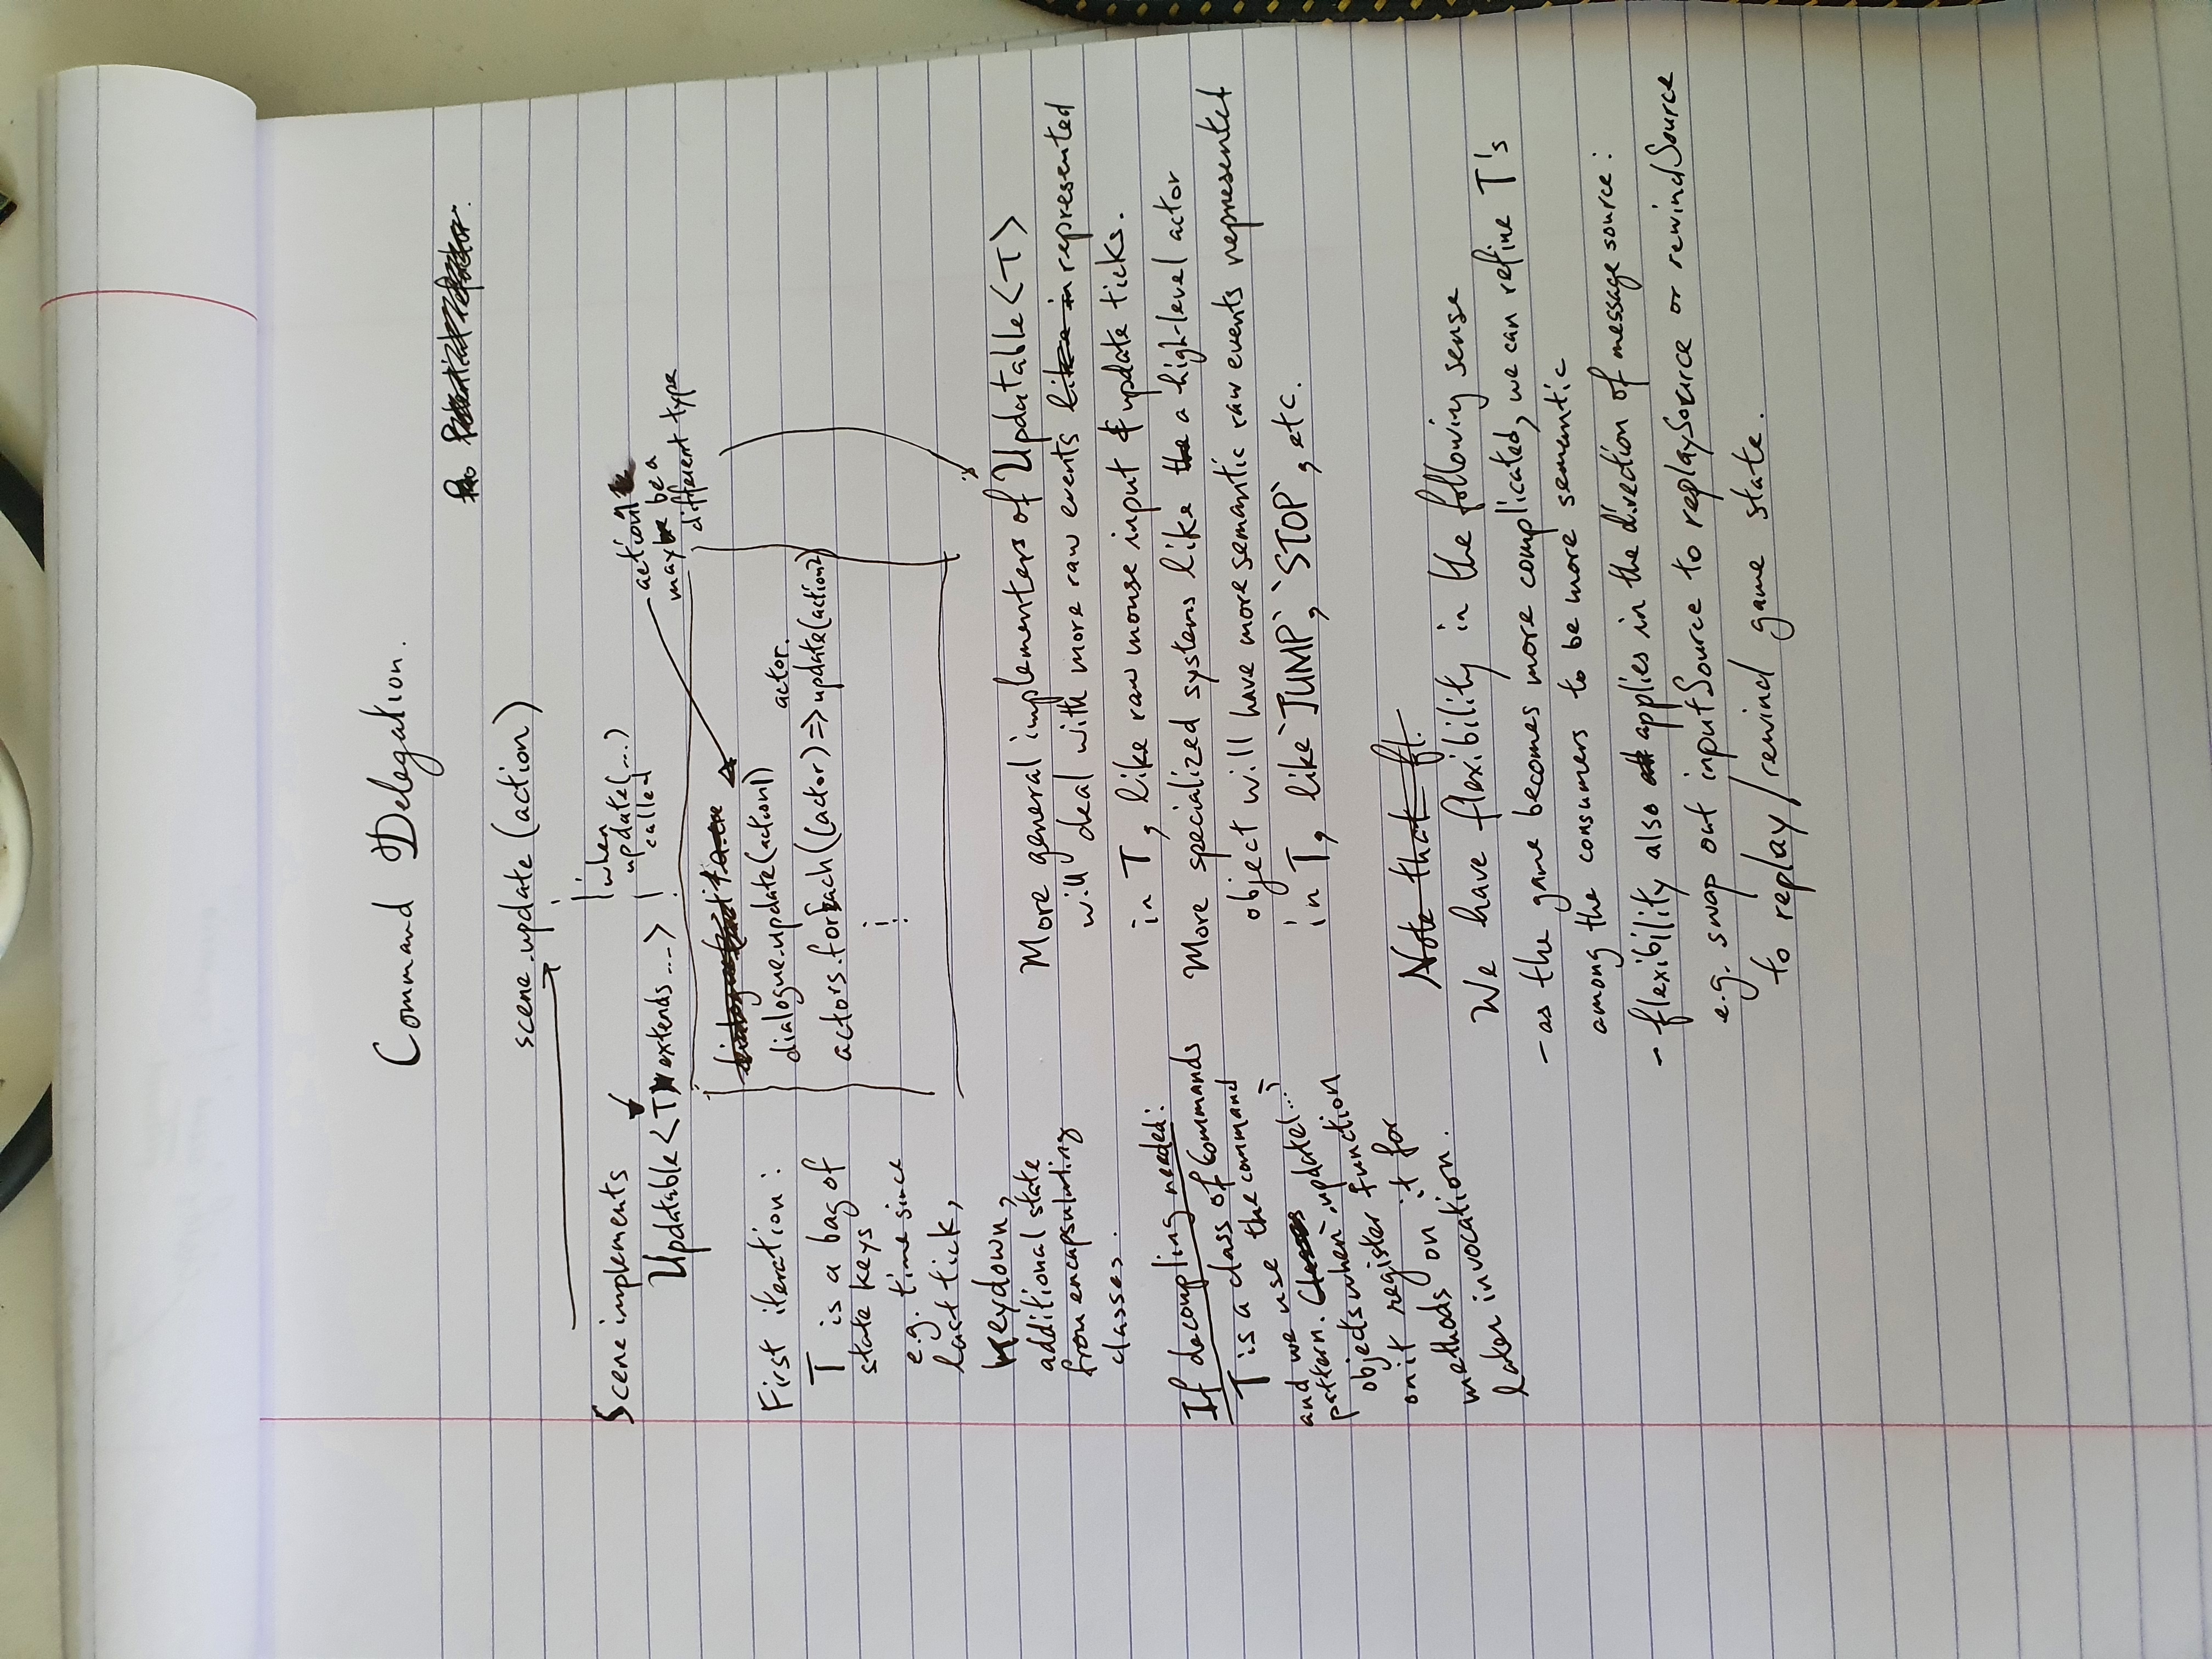 Command Delegation.
scene.update(action)
when
update(...)
called
Scene implements
Updatable<T extends ...>
action1
may be a
different type
dialogue.update(action1)
actor.
actors.forEach((actor) => update(action2)
First iteration:
T is a bag of
state keys
e.g. time since
last tick,
keydown,
additional state
from encapsulating
classes.
More general implementers of Updatable<T>
will deal with more raw events like in represented
in T, like raw mouse input & update ticks.
More specialized systems like the a high-level actor
object will have more semantic raw events represented
in T, like `JUMP`, `STOP`, etc.
If decoupling needed:
T is a class of Commands
and we use the command
pattern. Classes when .update(...)
objects register function
on it register it for
methods on
later invocation.
Note that ft.
We have flexibility in the following sense
- as the game becomes more complicated, we can refine T's
among the consumers to be more semantic
- flexibility also applies in the direction of message source:
e.g. swap out inputSource to replaySource or rewindSource
to replay/rewind game state.